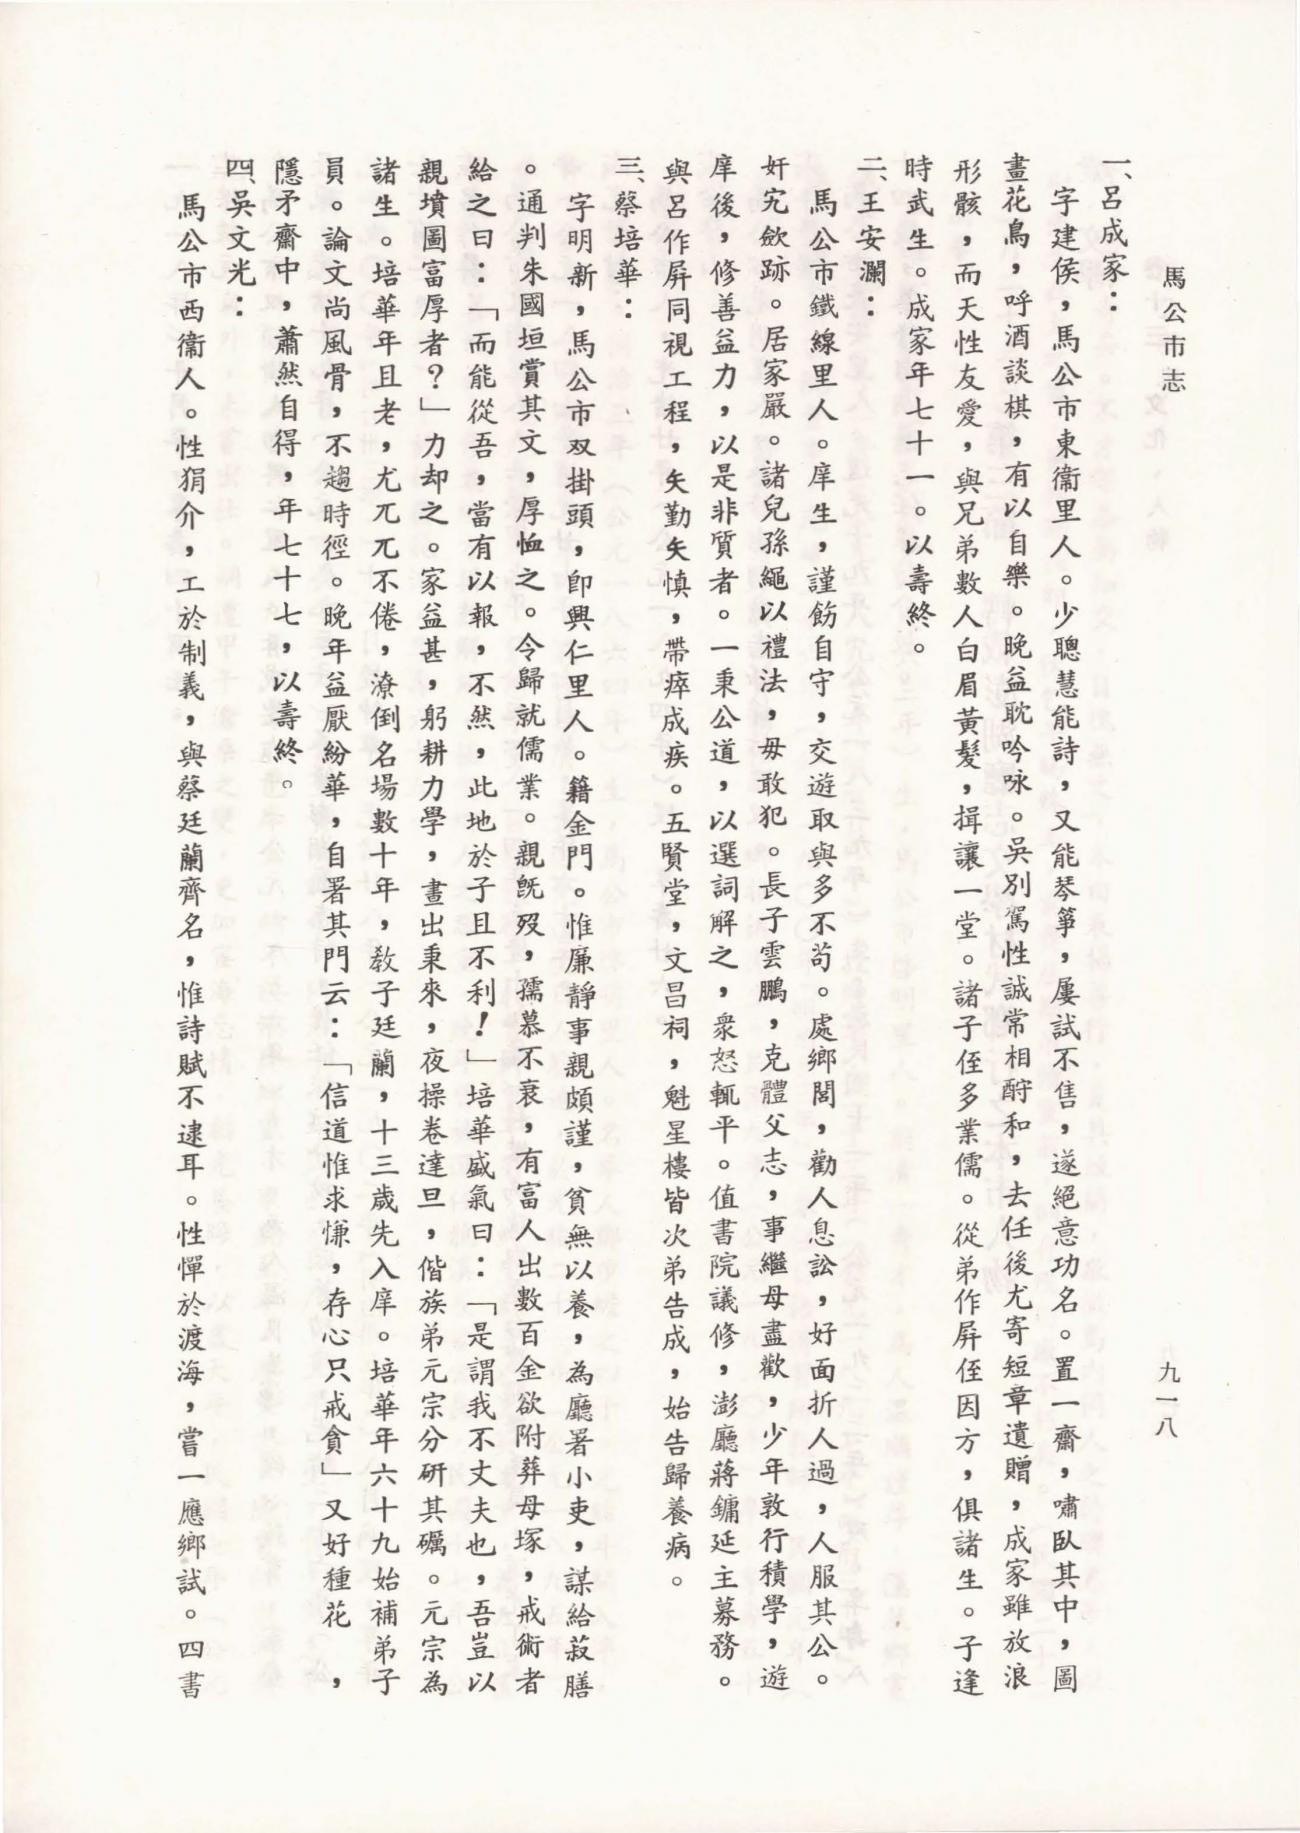 馬公市志
九一八
一、呂成家：
字建侯，馬公市東衞里人。少聰慧能詩，又能琴箏，屢試不售，遂絕意功名。置一齋，嘯臥其中，圖
畫花鳥，呼酒談棋，有以自樂。晚益耽吟咏。吳別駕性誠常相酧和，去任後尤寄短章遺贈，成家雖放浪
形骸，而天性友愛，與兄弟數人白眉黃髮，揖讓一堂。諸子侄多業儒。從弟作屏侄因方，俱諸生。子逢
時武生。成家年七十一。以壽終。
二、王安瀾：
馬公市鐵線里人。庠生，謹飭自守，交遊取與多不苟。處鄉閭，勸人息訟，好面折人過，人服其公。
奸宄歛跡。居家嚴。諸兒孫繩以禮法，毋敢犯。長子雲鵬，克體父志，事繼母盡歡，少年敦行積學，遊
庠後，修善益力，以是非質者。一秉公道，以選詞解之，衆怒輒平。值書院議修，澎廳蔣鏞延主募務。
與呂作屏同視工程，矢勤矢慎，帶瘁成疾。五賢堂，文昌祠，魁星樓皆次第告成，始告歸養病。
三、蔡培華：
字明新，馬公市双掛頭，卽興仁里人。籍金門。惟廉靜事親頗謹，貧無以養，為廳署小吏，謀給菽膳
。通判朱國垣賞其文，厚恤之。令歸就儒業。親旣歿，孺慕不衰，有富人出數百金欲附葬母塚，戒術者
給之曰：「而能從吾，當有以報，不然，此地於子且不利！」培華盛氣曰：「是謂我不丈夫也，吾豈以
親墳圖富厚者？」力却之。家益甚，躬耕力學，晝出秉來，夜操卷達旦，偕族弟元宗分研其礪。元宗為
諸生。培華年且老，尤兀兀不倦，潦倒名場數十年，敎子廷蘭，十三歲先入庠。培華年六十九始補弟子
員。論文尚風骨，不趨時徑。晚年益厭紛華，自署其門云：「信道惟求慊，存心只戒貪」又好種花，
隱矛齋中，蕭然自得，年七十七，以壽終。
四、吳文光：
馬公市西衞人。性狷介，工於制義，與蔡廷蘭齊名，惟詩賦不逮耳。性憚於渡海，嘗一應鄉試。四書